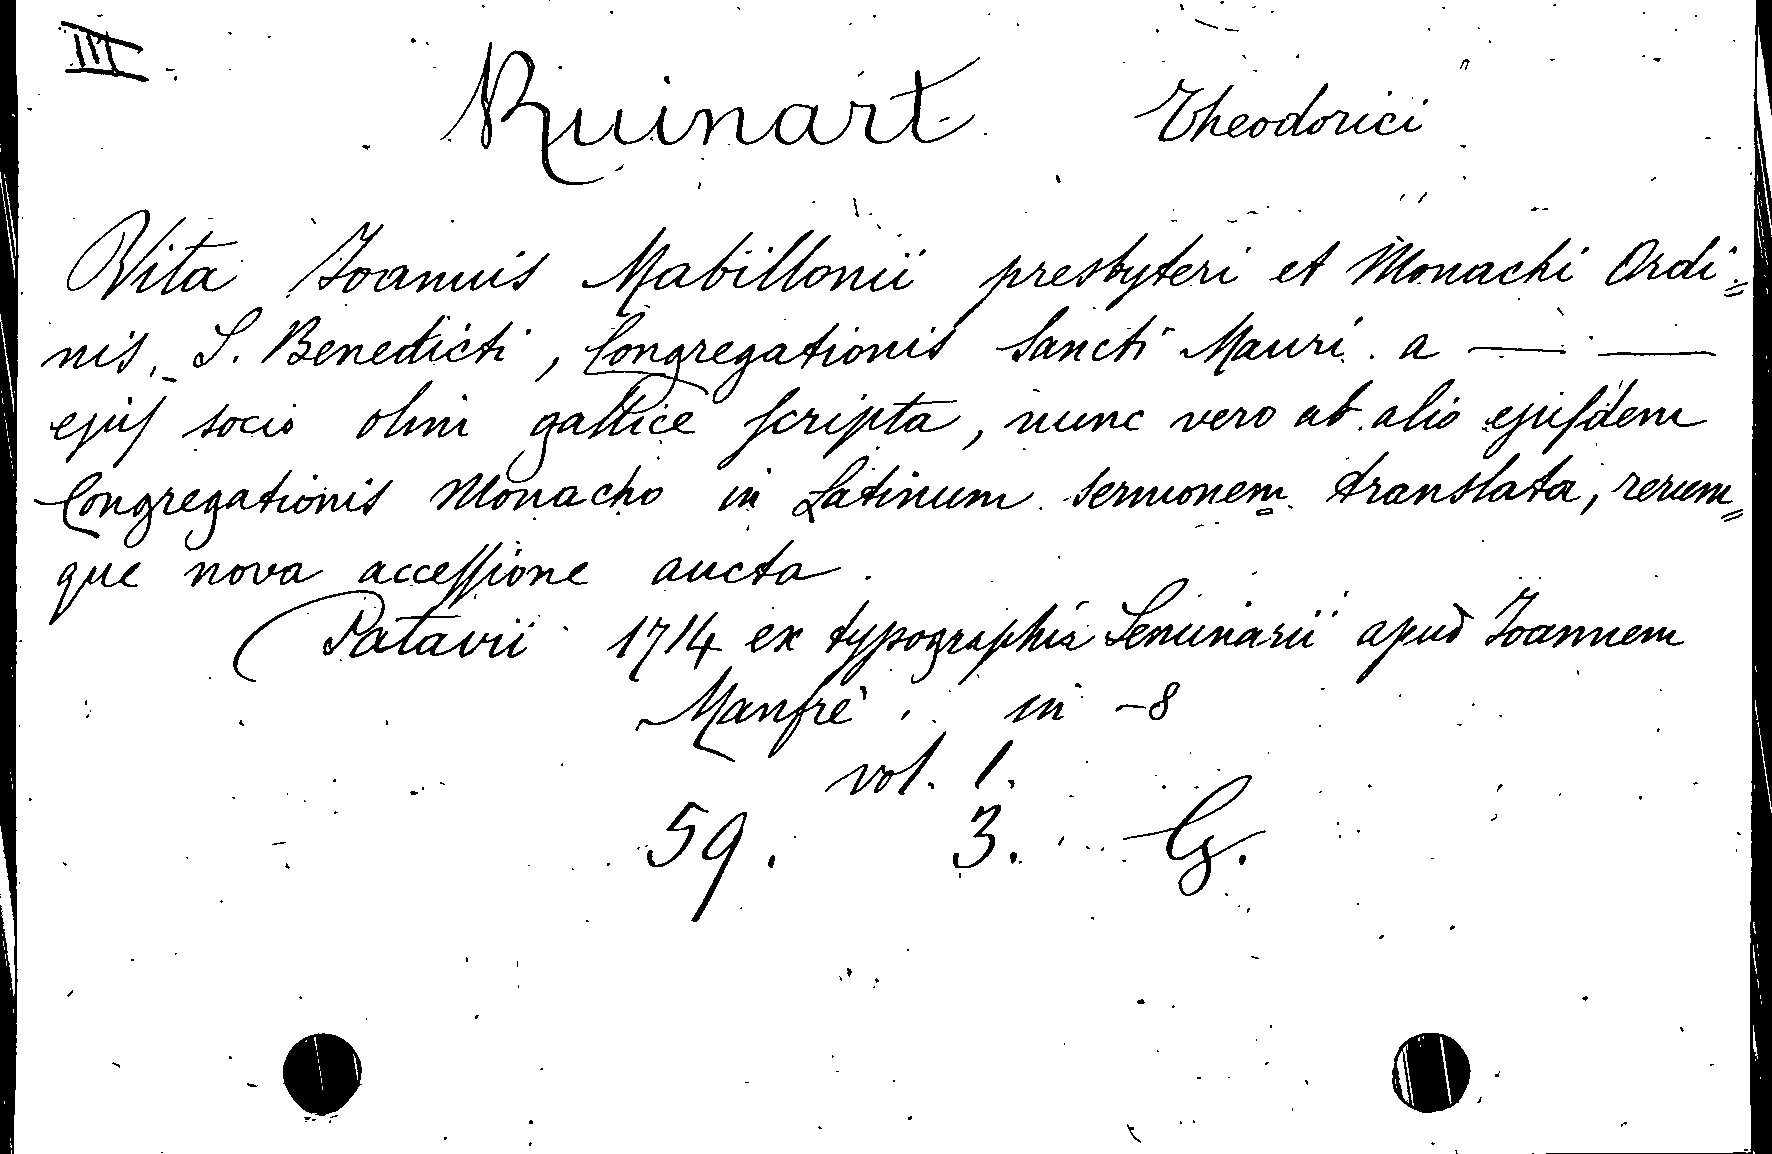 III
Ruinart Theodorici
Vita Joannis Mabillonii presbyteri et Monachi Ordi=
nis S. Benedicti, Congregationis Sancti Mauri a — —
ejuſ socio olim gallice ſcripta, nunc vero ab alio ejuſdem
Congregationis Monacho in Latinum sermonem translata, rerum=
que nova acceſſione aucta.
Patavii 1714 ex typographia Seminarii apud Joannem
Manfrè. in -8
vol. 1.
59. 3. G.